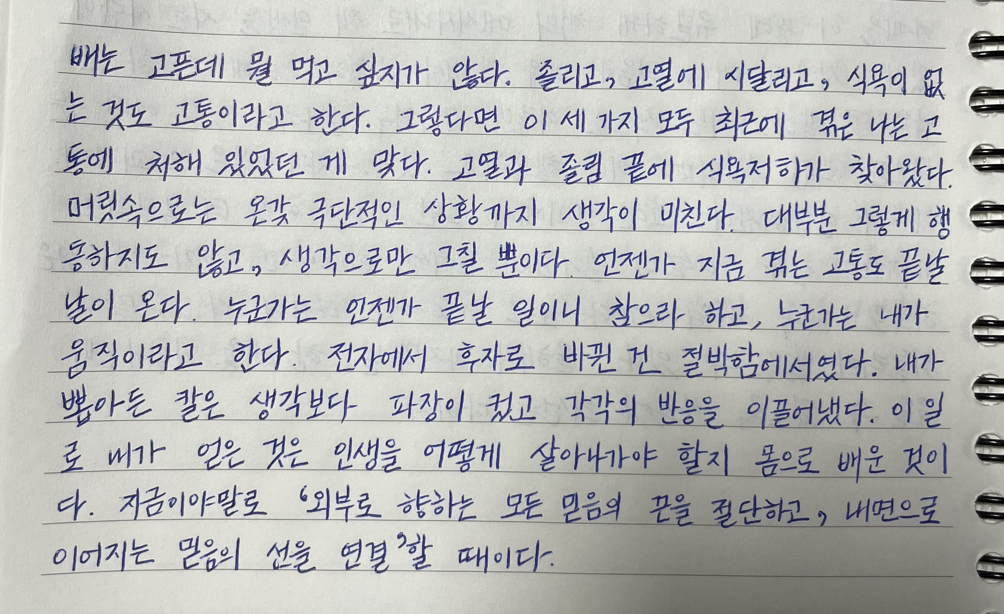 배는 고픈데 뭘 먹고 싶지가 않다. 졸리고, 고열에 시달리고, 식욕이 없
는 것도 고통이라고 한다. 그렇다면 이 세 가지 모두 최근에 겪은 나는 고
통에 처해 있었던 게 맞다. 고열과 졸림 끝에 식욕저하가 찾아왔다.
머릿속으로는 온갖 극단적인 상황까지 생각이 미친다. 대부분 그렇게 행
동하지도 않고, 생각으로만 그칠 뿐이다. 언젠가 지금 겪는 고통도 끝날
날이 온다. 누군가는 언젠가 끝날 일이니 참으라 하고, 누군가는 내가
움직이라고 한다. 전자에서 후자로 바뀐 건 절박함에서였다. 내가
뽑아든 칼은 생각보다 파장이 컸고 각각의 반응을 이끌어냈다. 이 일
로 내가 얻은 것은 인생을 어떻게 살아나가야 할지 몸으로 배운 것이
다. 지금이야말로 '외부로 향하는 모든 믿음의 끈을 절단하고, 내면으로
이어지는 믿음의 선을 연결'할 때이다.